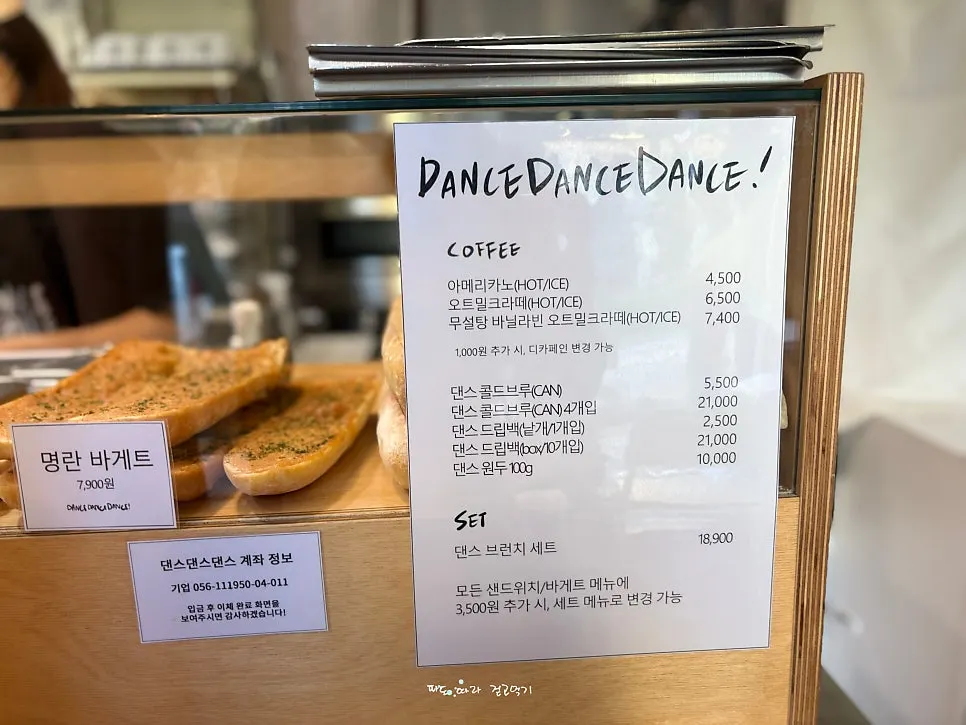 DANCEDANCEDANCE!
COFFEE
아메리카노(HOT/ICE) 4,500
오트밀크라떼(HOT/ICE) 6,500
무설탕 바닐라빈 오트밀크라떼(HOT/ICE) 7,400
1,000원 추가 시, 디카페인 변경 가능
댄스 콜드브루(CAN) 5,500
댄스 콜드브루(CAN) 4개입 21,000
댄스 드립백(낱개/1개입) 2,500
댄스 드립백(box/10개입) 21,000
댄스 원두 100g 10,000
SET
댄스 브런치 세트 18,900
모든 샌드위치/바게트 메뉴에
3,500원 추가 시, 세트 메뉴로 변경 가능
명란 바게트
7,900원
DANCEDANCEDANCE!
댄스댄스댄스 계좌 정보
기업 056-111950-04-011
입금 후 이체 완료 화면을
보여주시면 감사하겠습니다!
파도.따라 걷고먹기